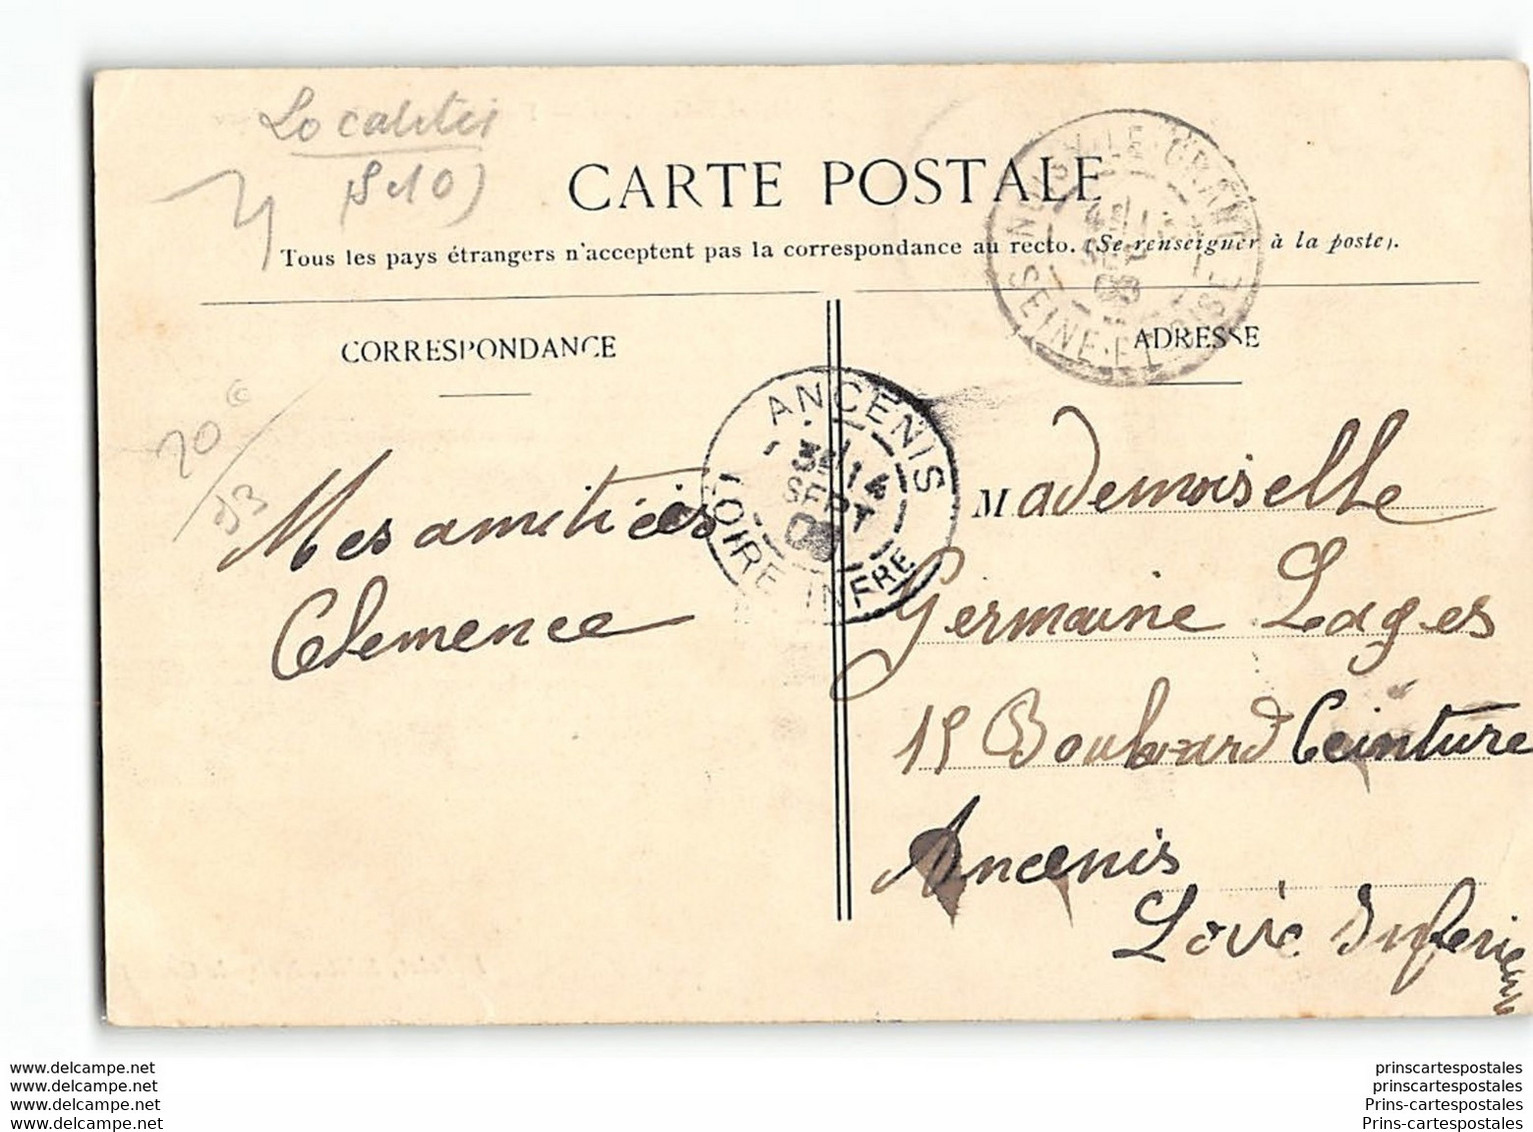 Localités
(S et O)
CARTE POSTALE
Tous les pays étrangers n'acceptent pas la correspondance au recto. (Se renseigner à la poste).
NOISY-LE-GRAND
SEINE-ET-OISE
CORRESPONDANCE
ADRESSE
20
ANCENIS
14
SEPT
LOIRE INFRE
Mes amitiées
Clemence
Mademoiselle
Germaine Lages
15 Boulevard Ceinture
Ancenis
Loire Inferieure
www.delcampe.net
www.delcampe.net
www.delcampe.net
www.delcampe.net
prinscartespostales
prinscartespostales
Prins-cartespostales
Prins-cartespostales